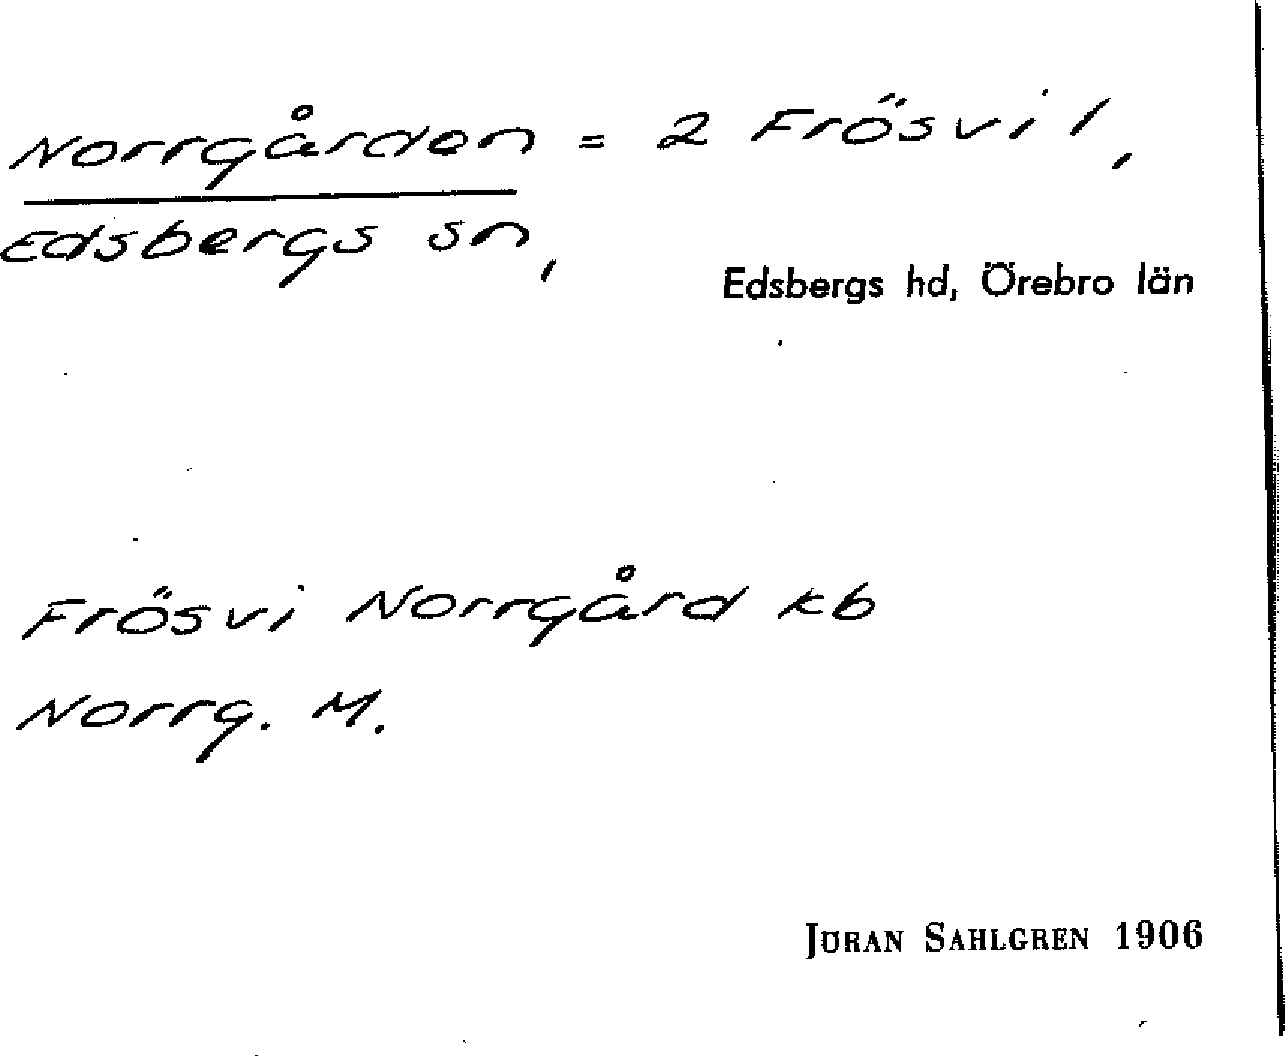 Norrgården = 2 Frösvi 1,
Edsbergs sn,
Edsbergs hd, Örebro län
Frösvi Norrgård kb
Norrg. M.
JÖRAN SAHLGREN 1906